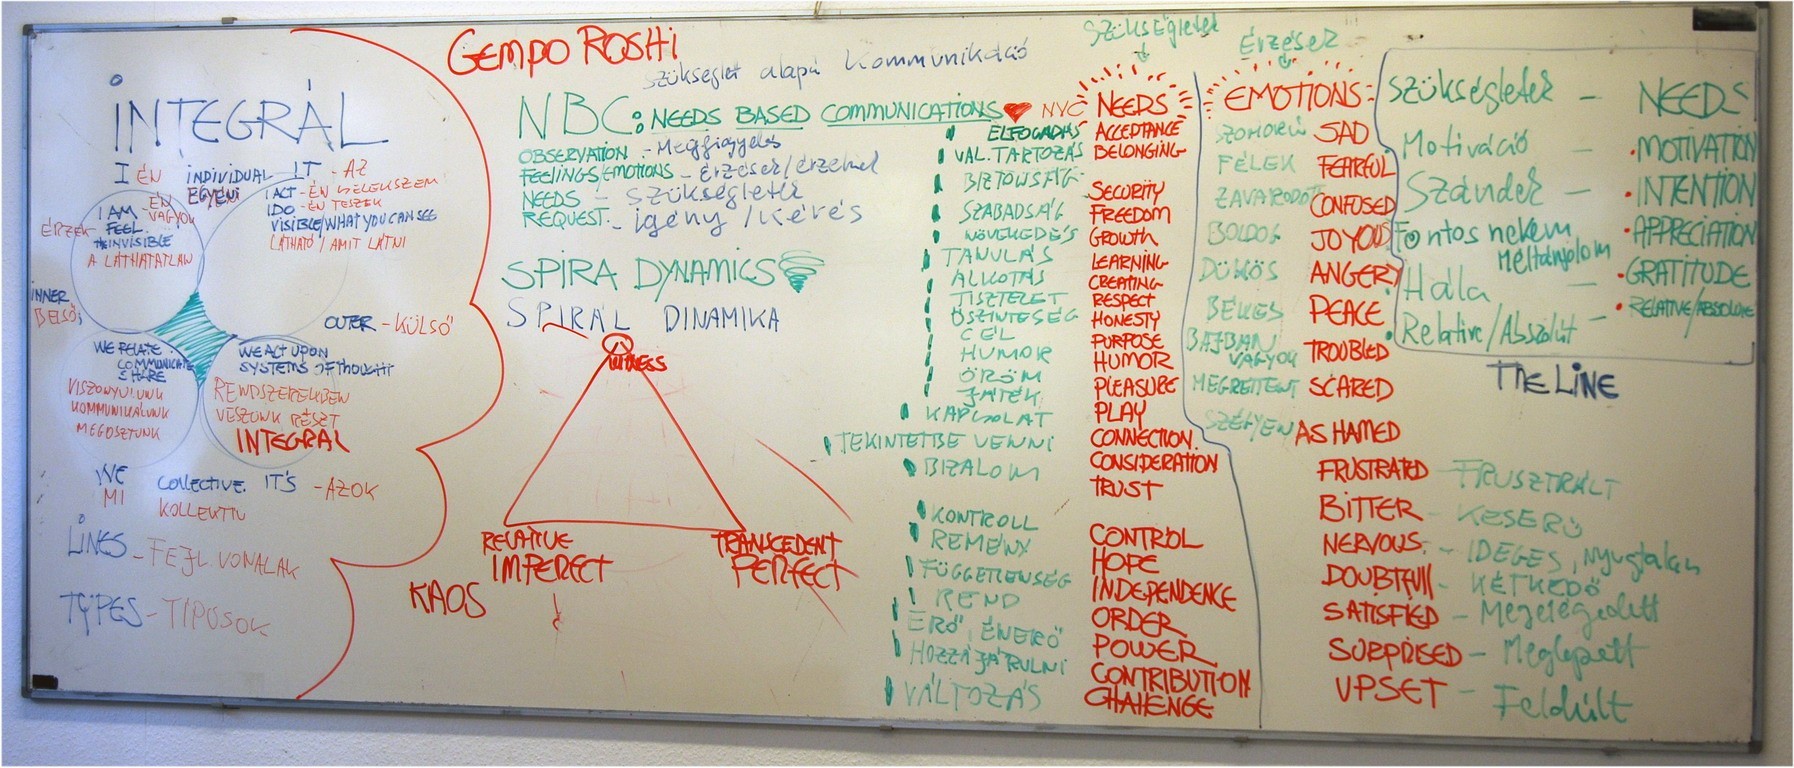 INTEGRÁL
I ÉN
INDIVIDUAL
EGYÉNI
IT - AZ
I AM
ÉN VAGYOK
FEEL
ÉRZEK
INVISIBLE
A LÁTHATATLAN
I ACT - ÉN
I DO - ÉN TESZEK
VISIBLE/WHAT YOU CAN SEE
LÁTHATÓ / AMIT LÁTNI
INNER
BELSŐ
OUTER - KÜLSŐ
WE RELATE
COMMUNICATE
SHARE
VISZONYULUNK
KOMMUNIKÁLUNK
MEGOSZTUNK
WE ACT UPON
SYSTEMS OF THOUGHT
RENDSZEREKBEN
VESZÜNK RÉSZT
INTEGRAL
WE
MI
COLLECTIVE
KOLLEKTIV
IT'S - AZOK
LINES - FEJL. VONALAK
TYPES - TIPUSOK
GEMPO ROSHI
Szükséglet alapú Kommunikáció
NBC: NEEDS BASED COMMUNICATIONS NYC
OBSERVATION - Megfigyelés
FEELINGS/EMOTIONS - érzések/érzékel
NEEDS - Szükségletek
REQUEST - igény / Kérés
SPIRA DYNAMICS
SPIRÁL DINAMIKA
WITNESS
RELATIVE
IMPERECT
TRANSCEDENT
PERFECT
KAOS
Szükségletek
NEEDS
ELFOGADÁS ACCEPTANCE
VAL. TARTOZÁS BELONGING
BIZTONSÁG SECURITY
SZABADSÁG FREEDOM
NÖVEKEDÉS GROWTH
TANULÁS LEARNING
ALKOTÁS CREATING
TISZTELET RESPECT
ŐSZINTESÉG HONESTY
CÉL PURPOSE
HUMOR HUMOR
ÖRÖM PLEASURE
JÁTÉK PLAY
KAPCSOLAT CONNECTION
TEKINTETBE VENNI CONSIDERATION
BIZALOM TRUST
KONTROLL CONTROL
REMÉNY HOPE
FÜGGETLENSÉG INDEPENDENCE
REND ORDER
ERŐ, ÉNERŐ POWER
HOZZÁJÁRULNI CONTRIBUTION
VÁLTOZÁS CHALLENGE
Érzések
EMOTIONS
SZOMORÚ SAD
FÉLEK FEARFUL
ZAVARODOTT CONFUSED
BOLDOG JOYOUS
DÜHÖS ANGERY
BÉKÉS PEACE
BAJBAN VAGYOK TROUBLED
MEGRETTENT SCARED
SZÉGYEN ASHAMED
FRUSTRATED - FRUSZTRÁLT
BITTER - KESERŰ
NERVOUS - IDEGES, Nyugtalan
DOUBTFULL - KÉTKEDŐ
SATISFIED - Megelégedett
SURPRISED - Meglepett
UPSET - Feldúlt
Szükségletek - NEEDS
Motiváció - MOTIVATION
Szándék - INTENTION
Fontos nekem Méltányolom APPRECIATION
Hála - GRATITUDE
Relative/Abszolút - RELATIVE/ABSOLUTE
THE LINE